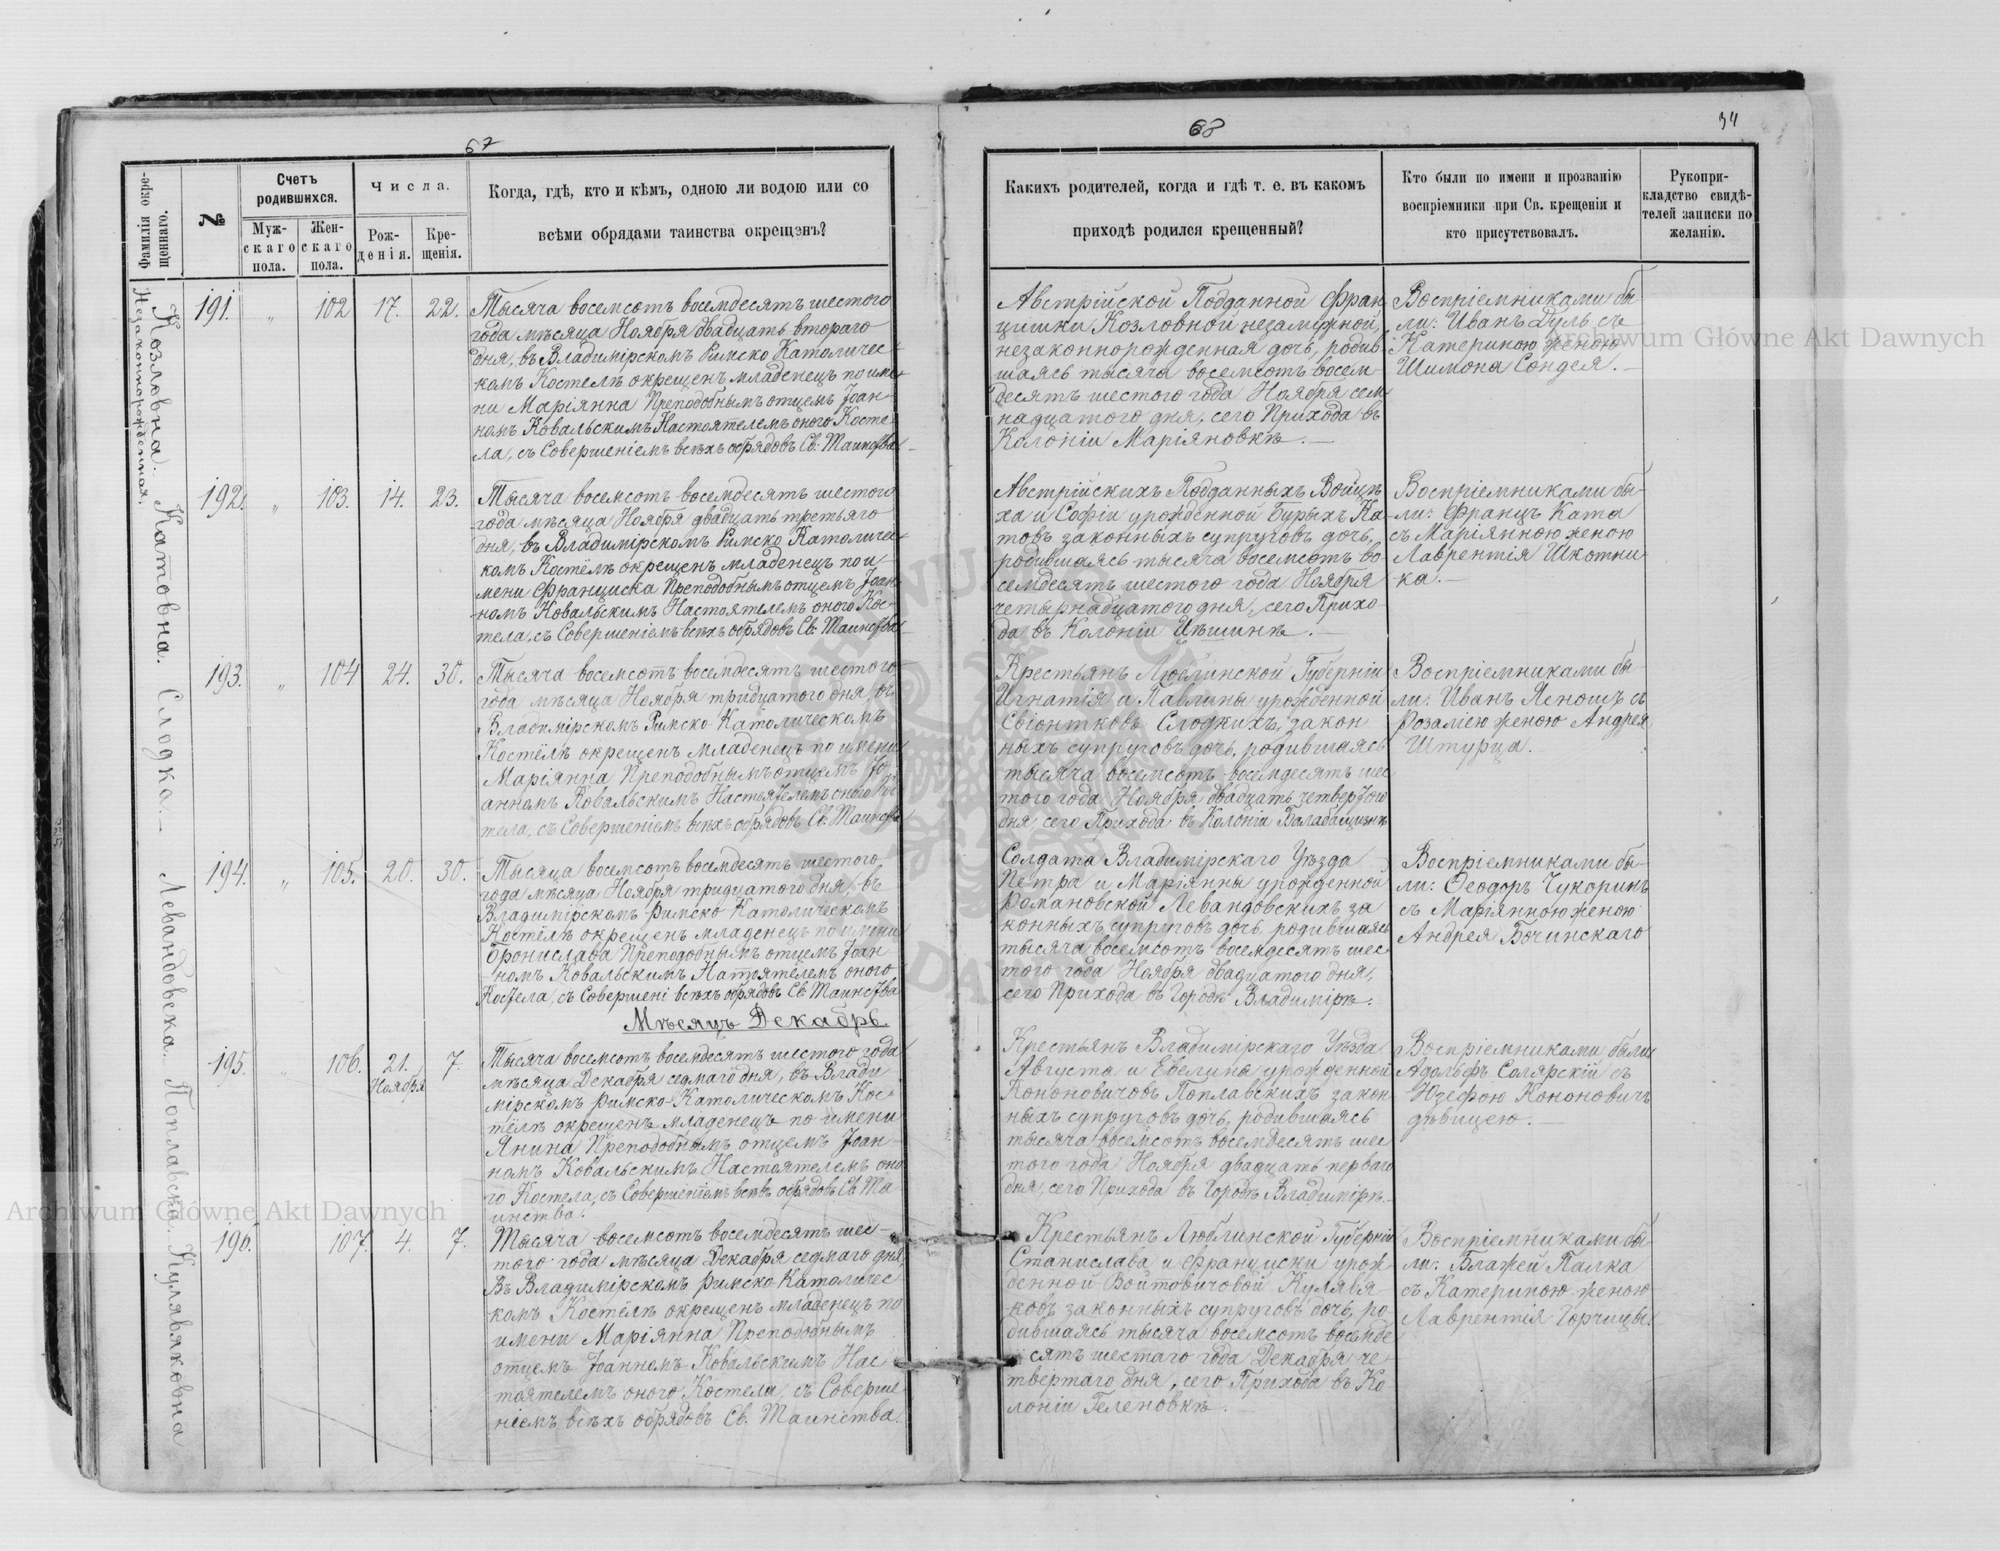 67
Фамилія окре-
щеннаго.
№
Счетъ
родившихся.
Муж-
скаго
пола.
Жен-
скаго
пола.
Числа.
Рож-
денія.
Кре-
щенія.
Когда, гдѣ, кто и кѣмъ, одною ли водою или со
всѣми обрядами таинства окрещэнъ?
Козловна.
Незаконнорожденная.
191.
"
102
17.
22.
Тысяча восемсотъ восемдесятъ шестого
года мѣсяца Ноября двадцать втораго
дня, въ Владимірскомъ Римско Католичес-
комъ Костелѣ окрещенъ младенецъ по име-
ни Маріянна Преподобнымъ отцемъ Іоан-
номъ Ковальскимъ Настоятелемъ оного Косте-
ла, съ Совершеніемъ всѣхъ обрядовъ Св. Таинства
Катовна.
192.
"
103.
14.
23.
Тысяча восемсотъ восемдесятъ шестого
года мѣсяца Ноября двадцать третьяго
дня, въ Владимірскомъ Римско Католичес-
комъ Костелѣ окрещенъ младенецъ по и
мени Франциска Преподобнымъ отцемъ Іоан
номъ Ковальскимъ Настоятелемъ оного Кос-
тела, съ Совершеніемъ всѣхъ обрядовъ Св. Таинства
Слодка.
193.
"
104
24.
30.
Тысяча восемсотъ восемдесятъ шестого
года мѣсяца Ноября тридцатого дня, въ
Владимірскомъ Римско Католическомъ
Костёлѣ окрещенъ младенецъ по имени
Маріянна Преподобнымъ отцемъ Іо
анномъ Ковальскимъ Настоятелемъ оного Кос
тела, съ Совершеніемъ всѣхъ обрядовъ Св. Таинства
Левандовска.
194.
"
105.
20.
30.
Тысяца восемсотъ восемдесятъ шестого
года мѣсяца Ноября тридцатого дня, въ
Владимірскомъ Римско Католическомъ
Костёлѣ окрещенъ младенецъ по имени
Бронислава Преподобнымъ отцемъ Іоан
номъ Ковальскимъ Настоятелемъ оного
Костела, съ Совершені всѣхъ обрядовъ Св. Таинства
Мѣсяцъ Декабрь.
Поплавска.
195.
"
106.
21.
Ноября
7.
Тысяча восемсотъ восемдесятъ шестого года
мѣсяца Декабря седмаго дня, въ Влади
мірскомъ Римско Католическомъ Кос-
телѣ окрещенъ младенецъ по имени
Янина Преподобнымъ отцемъ Іоан-
номъ Ковальскимъ Настоятелемъ оно
го Костела, съ Совершеніемъ всѣхъ обрядовъ Св. Та
инства.
Кулявяковна
196.
107.
4.
7.
Тысяча восемсотъ восемдесятъ шес-
того года мѣсяца Декабря седмаго дня,
въ Владимірскомъ Римско Католичес
комъ Костёлѣ окрещенъ младенецъ по
имени Маріянна Преподобнымъ
отцемъ Іоанномъ Ковальскимъ Нас-
тоятелемъ оного Костела, съ Соверше
ніемъ всѣхъ обрядовъ Св. Таинства.
68
34
Какихъ родителей, когда и гдѣ т. е. въ какомъ
приходѣ родился крещенный?
Кто были по имени и прозванію
воспріемники при Св. крещеніи и
кто присутствовалъ.
Рукопри-
кладство свидѣ-
телей записки по
желанію.
Австрійской Подданной Фран
цишки Козловной незамужной,
незаконнорожденная дочь, родив-
шаясь тысяча восемсотъ восем-
десятъ шестого года Ноября сем
надцатого дня, сего Прихода въ
Колоніи Маріяновкѣ.
Воспріемниками бы
ли: Иванъ Дуль съ
Катериною женою
Шимона Сондея.
Австрійскихъ Подданныхъ Войцѣ
ха и Софіи урожденной Бурыхъ Ка-
товъ законныхъ супруговъ дочь,
родившаясь тысяча восемсотъ во-
семдесятъ шестого года Ноября
четырнадцатого дня, сего Прихо-
да въ Колоніи Цѣшинѣ.
Воспріемниками бы-
ли: Францъ Ката
съ Маріянною женою
Лаврентія Шкотни
ка.
Крестьянъ Люблинской Губерніи
Игнатія и Павлины урожденной
Свіонтковъ Слодкихъ, закон
ныхъ супруговъ дочь, родившаясь
тысяча восемсотъ восемдесятъ шес
того года Ноября двадцать четвертого
дня, сего Прихода въ Колоніи Баладащизнѣ
Воспріемниками бы-
ли: Иванъ Яношъ съ
Розаліею женою Андрея
Штурца.
Солдата Владимірскаго Уѣзда
Петра и Маріянны урожденной
Романовской Левандовскихъ за
конныхъ супруговъ дочь, родившаясь
тысяча восемсотъ восемдесятъ шес
того года Ноября двадцатого дня,
сего Прихода въ Городѣ Владимірѣ.
Воспріемниками бы-
ли: Ѳеодоръ Чукоринъ
съ Маріянною женою
Андрея Бочинскаго
Крестьянъ Владимірскаго Уѣзда
Августа и Евелины урожденной
Кононовичовъ Поплавскихъ закон
ныхъ супруговъ дочь, родившаясь
тысяча восемсотъ восемдесятъ шес
того года Ноября двадцать перваго
дня, сего Прихода въ Городѣ Владимірѣ.
Воспріемниками были
Адольфъ Солярскій съ
Юзефою Кононовичъ
дѣвицею.
Крестьянъ Люблинской Губерніи
Станислава и Франциски урож-
денной Войтовичовой Кулявя-
ковъ законныхъ супруговъ дочь, ро-
дившаясь тысяча восемсотъ восемде
сятъ шестаго года Декабря че-
твертаго дня, сего Прихода въ Ко
лоніи Геленовкѣ.
Воспріемниками бы-
ли: Блажей Палка
съ Катериною женою
Лаврентія Горчицы.
Archiwum Główne Akt Dawnych
Archiwum Główne Akt Dawnych